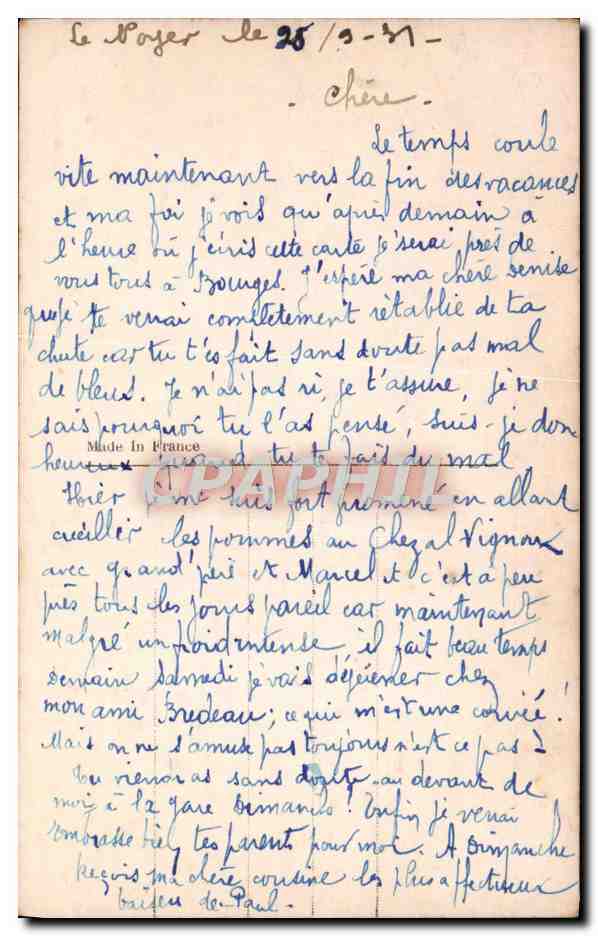 Le Noyer le 25/9-31-
- Chère -
Le temps coule
vite maintenant vers la fin des vacances
et ma foi je vois qu'après demain à
l'heure où j'écris cette carte je serai près de
vous tous à Bourges. J'espère ma chère Denise
que je te verrai complètement rétablie de ta
chute car tu t'es fait sans doute pas mal
de bleus. Je n'ai pas ri, je t'assure, je ne
sais pourquoi tu l'as pensé, suis-je donc
Made In France
heureux quand tu te fais du mal
CPAPHIL
Hier je me suis fort promené en allant
cueillir les pommes au Chezal Vignoux
avec grand'père et Marcel et c'est à peu
près tous les jours pareil car maintenant
malgré un froid intense il fait beau temps
Demain Samedi je vais déjeuner chez
mon ami Bredeau; ce qui m'est une corvée!
Mais on ne s'amuse pas toujours n'est ce pas?
Tu viendras sans doute au devant de
moi à la gare Dimanche! Enfin je verrai
Embrasse bien tes parents pour moi. A Dimanche
Reçois ma chère cousine les plus affectueux
baisers de Paul-